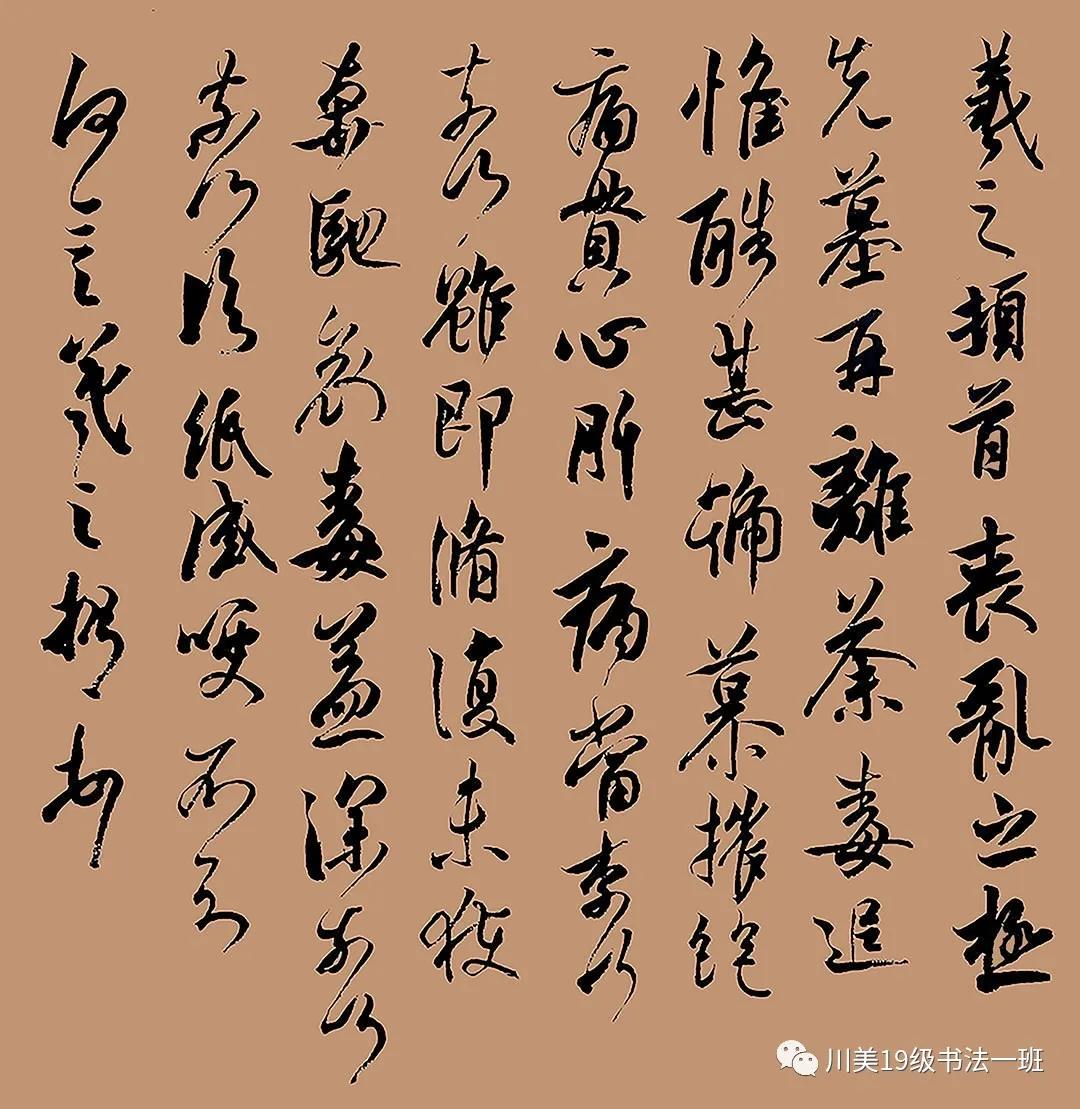 羲之頓首喪亂之極
先墓再離荼毒追
惟酷甚號慕摧絕
痛貫心肝痛當奈何
奈何雖即脩復未獲
奔馳哀毒益深奈何
奈何臨紙感哽不知
何言羲之頓首頓首
川美19级书法一班